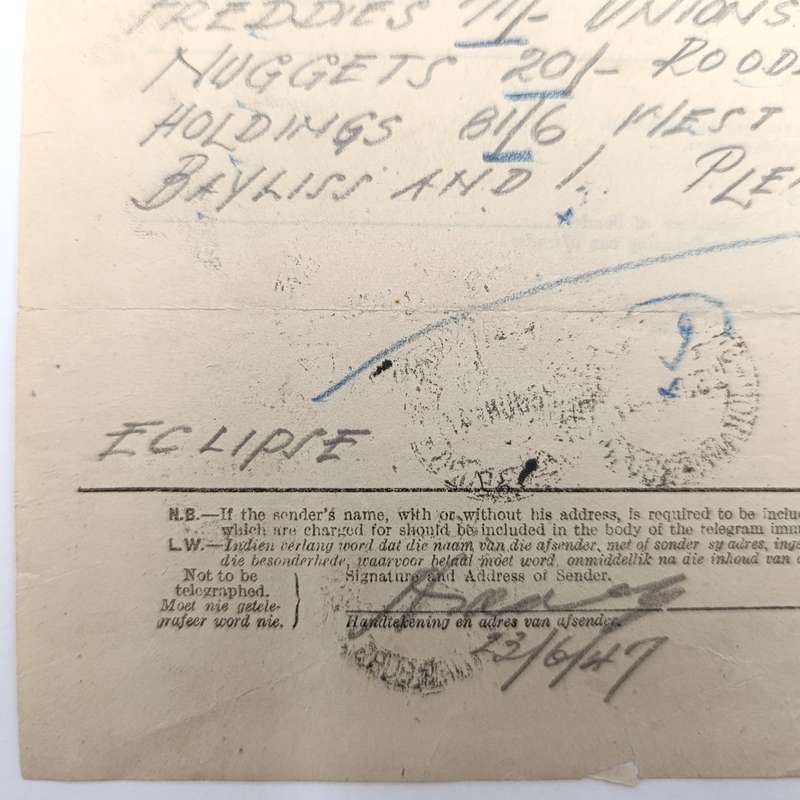 FREDDIES 71/- UNIONS
NUGGETS 20/- ROOD
HOLDINGS 81/6 WEST
BAYLISS AND 1. PLEA
ECLIPSE
N.B.—If the sender's name, with or without his address, is required to be inclu
which are charged for should be included in the body of the telegram imm
L.W.—Indien verlang word dat die naam van die afsender, met of sonder sy adres, inge
die besonderhede, waarvoor betaal moet word, onmiddellik na die inhoud van d
Not to be
telegraphed.
Moet nie getele-
grafeer word nie.
Signature and Address of Sender.
Handtekening en adres van afsender.
23/6/47